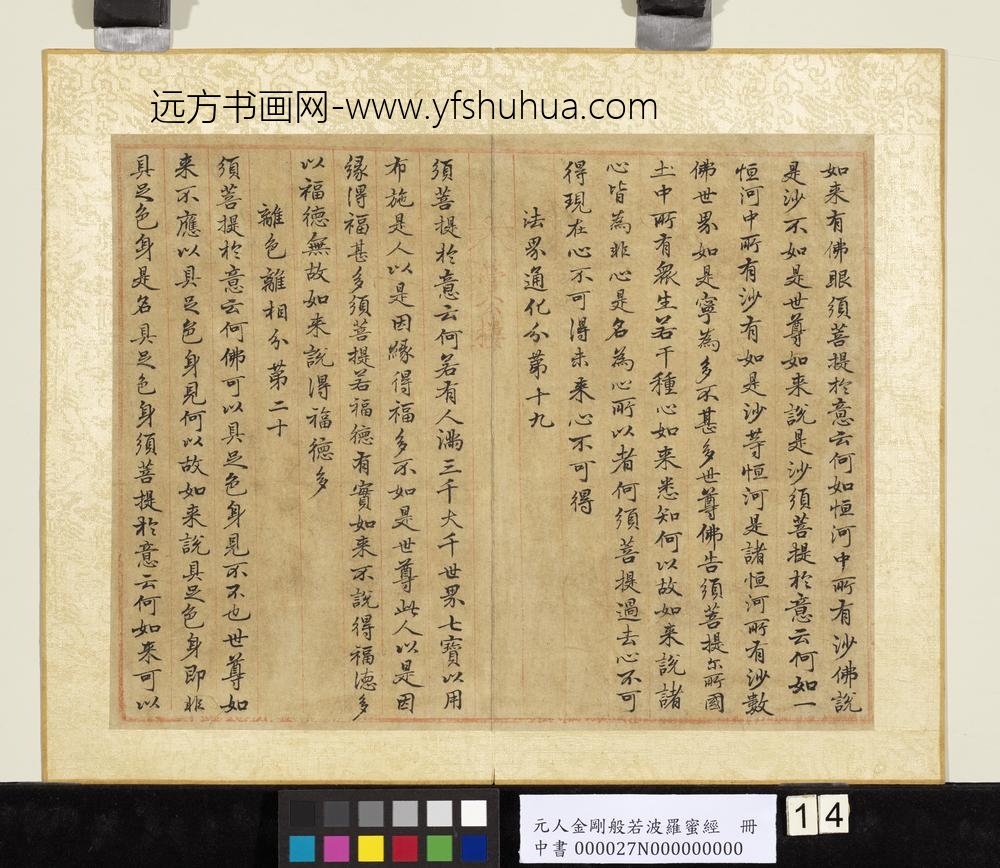 远方书画网-www.yfshuhua.com
如来有佛眼須菩提於意云何如恒河中所有沙佛說
是沙不如是世尊如来說是沙須菩提於意云何如一
恒河中所有沙有如是沙等恒河是諸恒河所有沙數
佛世界如是寧為多不甚多世尊佛告須菩提尓所國
土中所有衆生若干種心如来悉知何以故如来說諸
心皆為非心是名為心所以者何須菩提過去心不可
得現在心不可得未来心不可得
法界通化分第十九
須菩提於意云何若有人滿三千大千世界七寶以用
布施是人以是因緣得福多不如是世尊此人以是因
緣得福甚多須菩提若福德有實如来不說得福德多
以福德無故如来說得福德多
離色離相分第二十
須菩提於意云何佛可以具足色身見不不也世尊如
来不應以具足色身見何以故如来說具足色身即非
具足色身是名具足色身須菩提於意云何如来可以
元人金剛般若波羅蜜經 冊
中書 000027N000000000
14